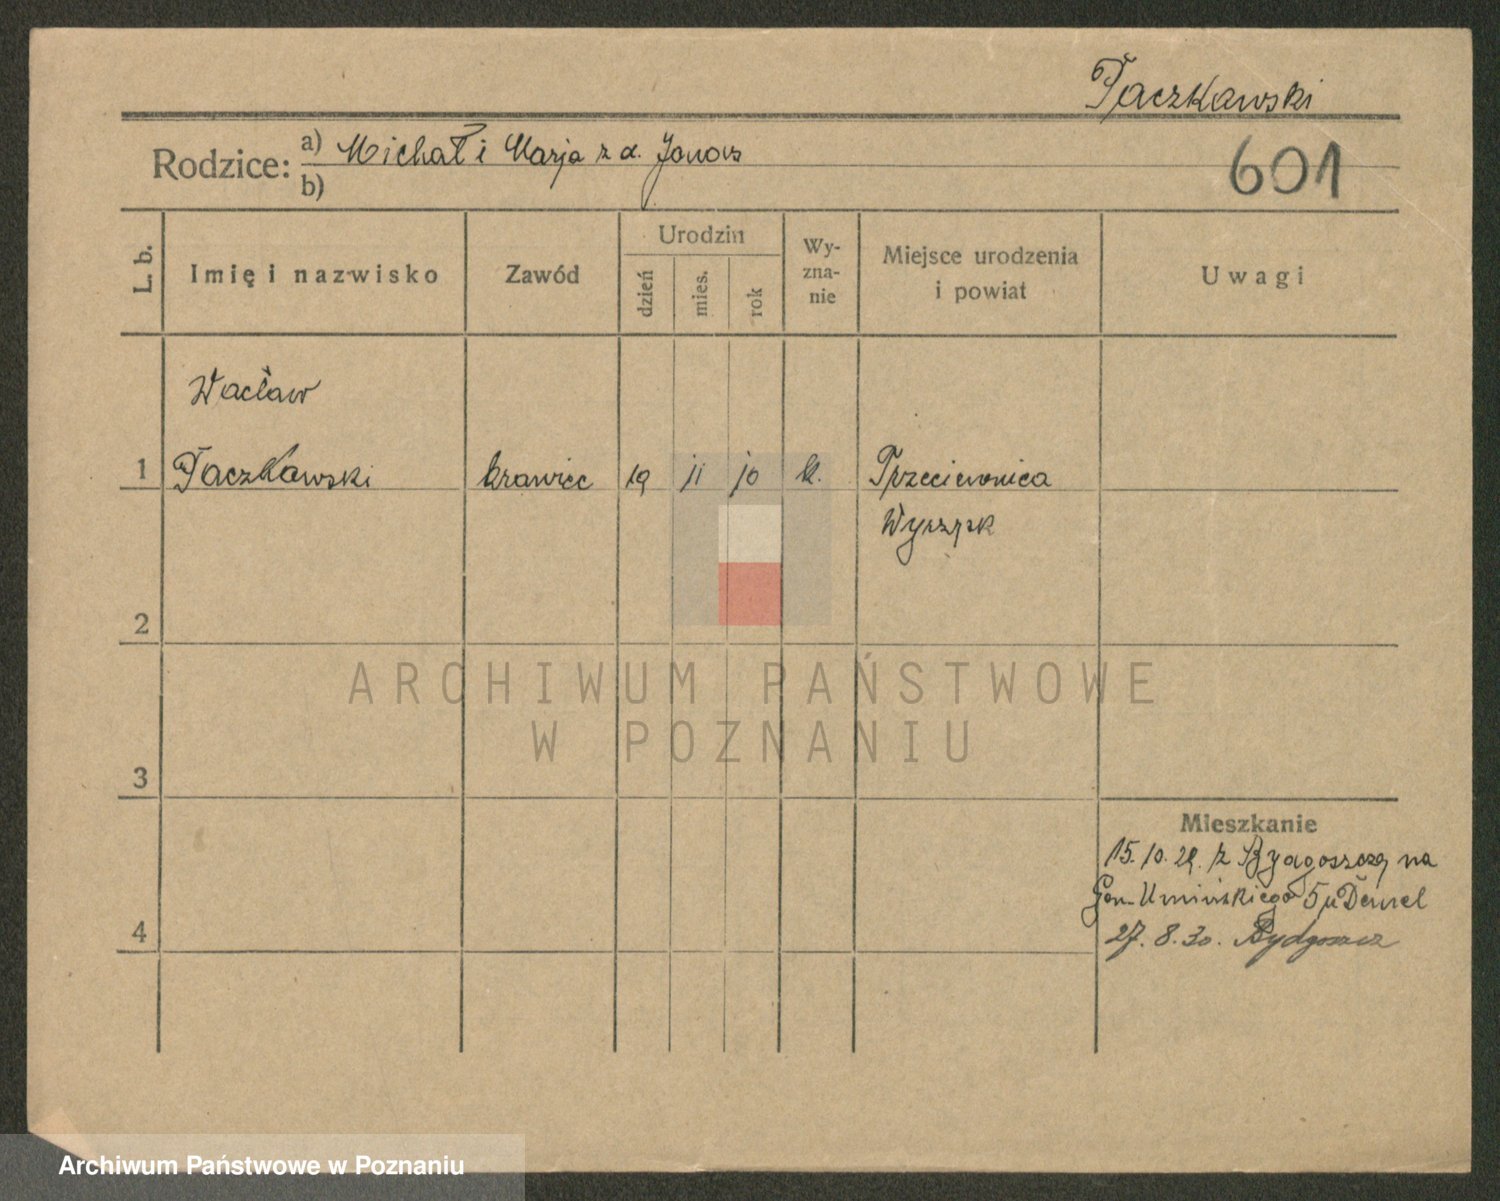 Taczkowski
Rodzice: a) Michał i Marja z d.
b)
601
L. b.
Imię i nazwisko
Zawód
Urodzin
dzień
mies.
rok
Wy-
zna-
nie
Miejsce urodzenia
i powiat
Uwagi
Wacław
1 Taczkowski krawiec 19 11 10 k. Trzeciewnica
Wyrzysk
2
ARCHIWUM PAŃSTWOWE
W POZNANIU
3
Mieszkanie
15.10.29. z Bydgoszczy na
Gen. Umińskiego 5 u
4
27.8.30. Bydgoszcz
Archiwum Państwowe w Poznaniu